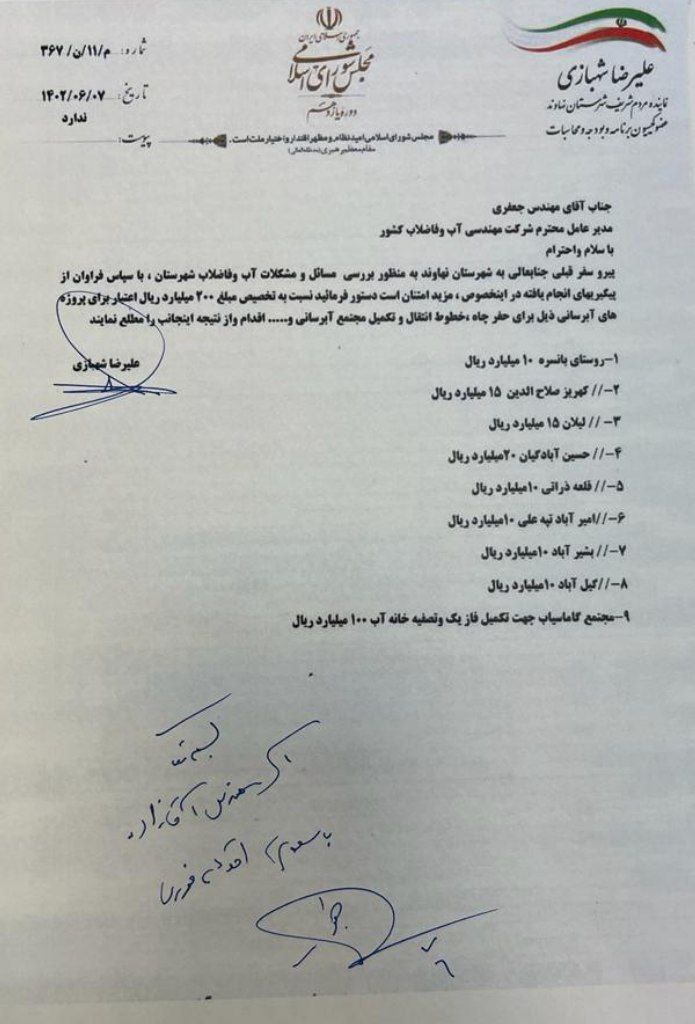 جمهوری اسلامی ایران
مجلس شورای اسلامی
دوره یازدهم
علیرضا شهبازی
نماینده مردم شریف شهرستان نهاوند
عضو کمیسیون برنامه و بودجه و محاسبات
شماره: م/۱۱/ن/۳۶۷
تاریخ: ۱۴۰۲/۰۶/۰۷
ندارد
پیوست:
مجلس شورای اسلامی امید نظام و مظهر اقتدار و اختیار ملت است.
مقام معظم رهبری (مدظله العالی)
جناب آقای مهندس جعفری
مدیر عامل محترم شرکت مهندسی آب وفاضلاب کشور
با سلام واحترام
پیرو سفر قبلی جنابعالی به شهرستان نهاوند به منظور بررسی مسائل و مشکلات آب وفاضلاب شهرستان ، با سپاس فراوان از
پیگیریهای انجام یافته در اینخصوص ، مزید امتنان است دستور فرمائید نسبت به تخصیص مبلغ ۲۰۰ میلیارد ریال اعتبار برای پروژه
های آبرسانی ذیل برای حفر چاه ،خطوط انتقال و تکمیل مجتمع آبرسانی و..... اقدام واز نتیجه اینجانب را مطلع نمایند
علیرضا شهبازی
۱-روستای بانسره ۱۰ میلیارد ریال
۲-// کهریز صلاح الدین ۱۵ میلیارد ریال
۳- // لیلان ۱۵ میلیارد ریال
۴-// حسین آبادگیان ۲۰میلیارد ریال
۵-// قلعه ذراتی ۱۰میلیارد ریال
۶-//امیر آباد تپه علی ۱۰میلیارد ریال
۷-// بشیر آباد ۱۰میلیارد ریال
۸-//گیل آباد ۱۰میلیارد ریال
۹-مجتمع گاماسیاب جهت تکمیل فاز یک وتصفیه خانه آب ۱۰۰ میلیارد ریال
مهندس آقازاده
با سلام